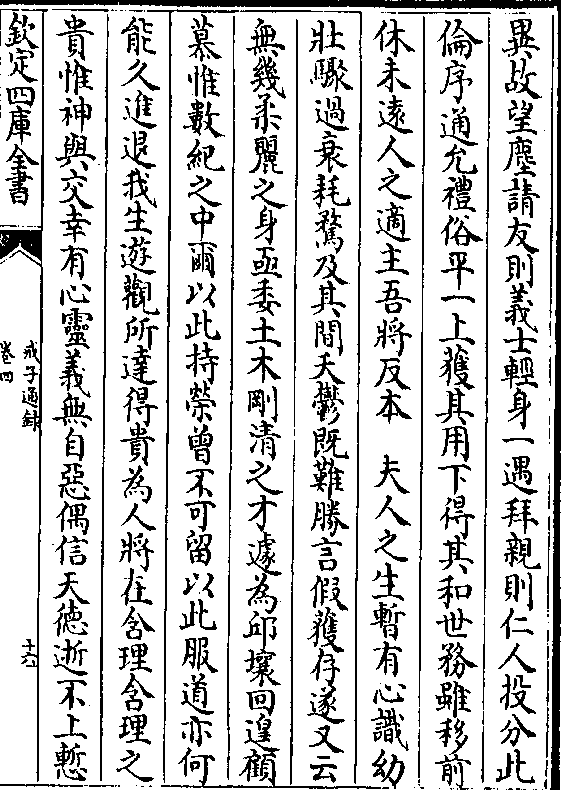 異故望塵請友則義士輕身一遇拜親則仁人投分此
倫序通允禮俗平一上獲其用下得其和世務雖移前
休未遠人之適主吾將反本　夫人之生暫有心識幼
壯驟過衰耗騖及其間夭鬱既難勝言假獲存遂又云
無幾柔麗之身亟委土木剛清之才遽為邱壤回遑顧
慕惟數紀之中爾以此持榮曾不可留以此服道亦何
能久進退我生遊觀所達得貴為人將在含理含理之
貴惟神與交幸有心靈義無自惡偶信天德逝不上慙
欽定四庫全書
戒子通錄
卷四
十六